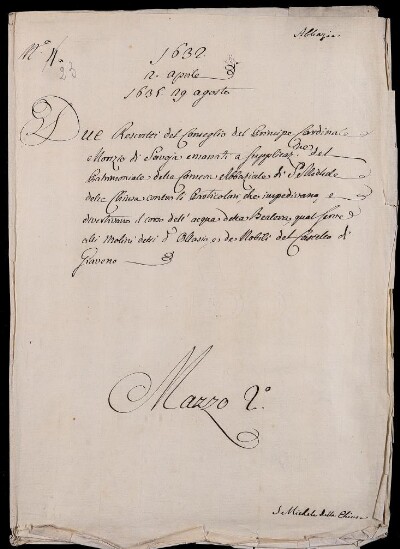 Abbazia.
N.° 4.°
23
1632
2. aprile
1635 29 agosto
Due Rescritti del Conseglio del Principe Cardinale
Morizio di Savoja emanati a Supplicaz.ne del
Patrimoniale della Camera Abbaziale di S. Michele
della Chiusa contro li Particolari che impedivano, e
divertivano il corso dell' acqua della Bealera, qual serve
alli Molini detti d' Abbazia, e de Nobili del Castello di
Giaveno
Mazzo 2.°
S. Michele della Chiusa